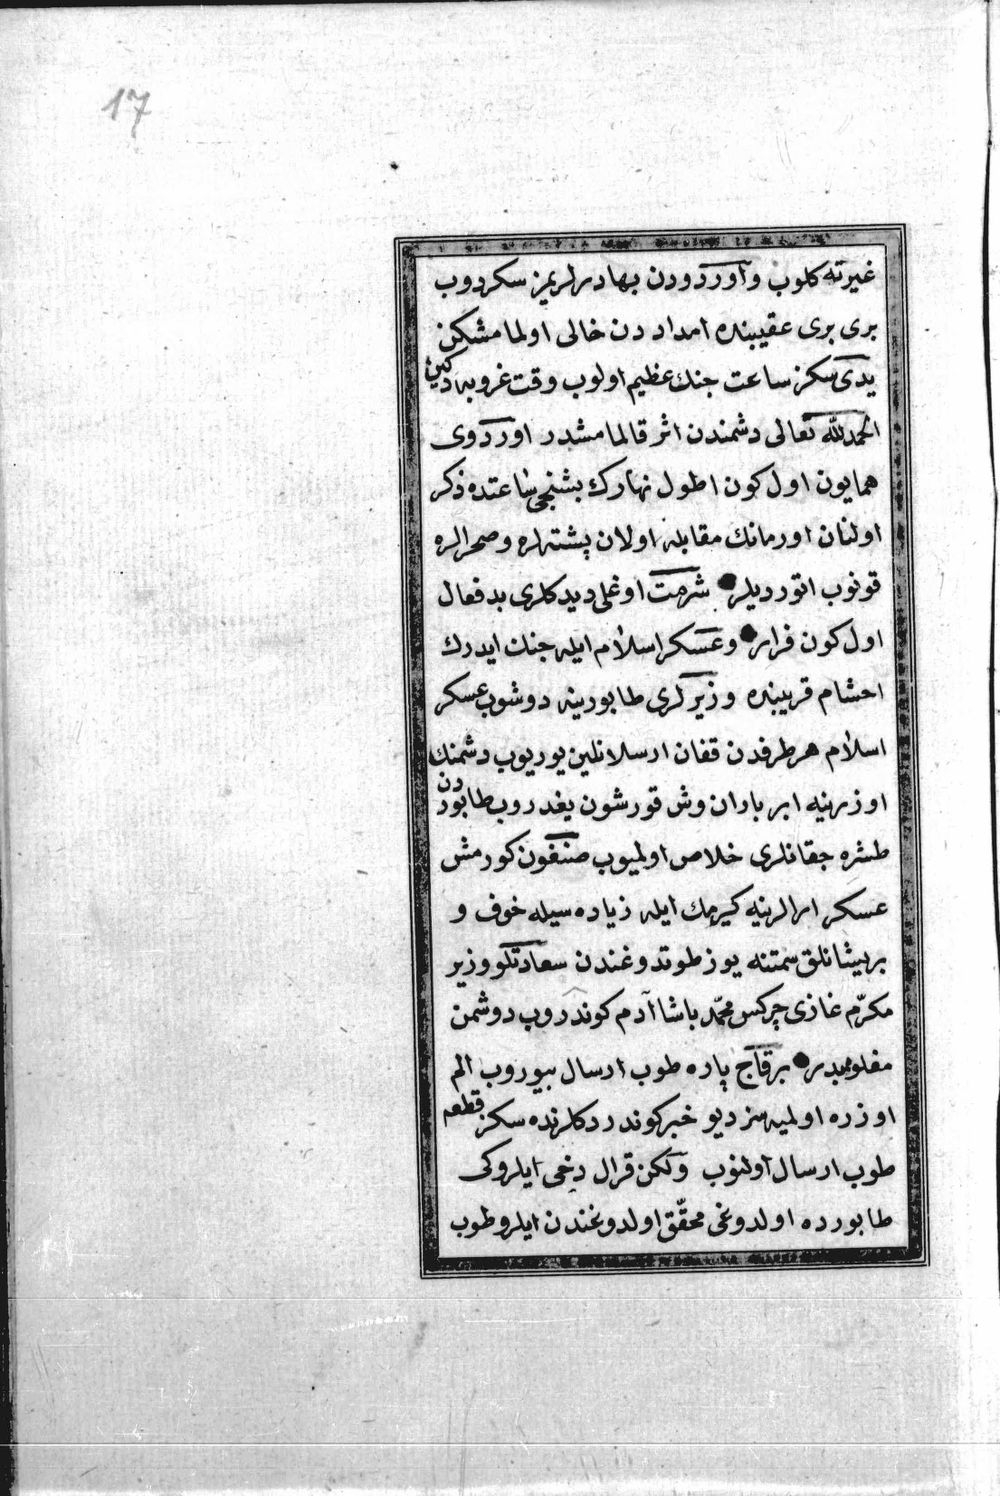 17
غيرته كلوب واوردودن بهادرلريمز سكردوب
برى برى عقيبنده امداددن خالى اولمامشكن
يدى سكز ساعت جنك عظيم اولوب وقت غروبه دكين
الحمد لله تعالى دشمندن اثر قالمامشدر اوردوى
همايون اول كون اطول نهارك بشنجى ساعتده ذكر
اولنان اورمانك مقابله اولان پشته لره وصحرالره
قونوب اتورديلر شرمت اوغلى ديدكلرى بدفعال
اول كون فرار وعسكر اسلام ايله جنك ايدرك
احشام قريبنده وزيرلرى طابورينه دوشوب عسكر
اسلام هر طرفدن قفان ارسلانلين يوريوب دشمنك
اوزرينه ابر باران وش قورشون يغدروب طابوردن
طشره جقانلرى خلاص اولميوب صنغون كورمش
عسكر ارالرينه كيرمك ايله زياده سيله خوف و
بريشانلق سمتنه يوز طوتدوغندن سعادتلو وزير
مكرّم غازى چركس محمّد باشا آدم كوندروب دوشمن
مغلوبمدر برقاج پاره طوب ارسال بيوروب الم
اوزره اولميه سز ديو خبر كوندردكلرنده سكز قطعه
طوب ارسال اولنوب ولكن قرال دخى ايلروكى
طابورده اولدوغى محقّق اولدوغندن ايلرو طوب